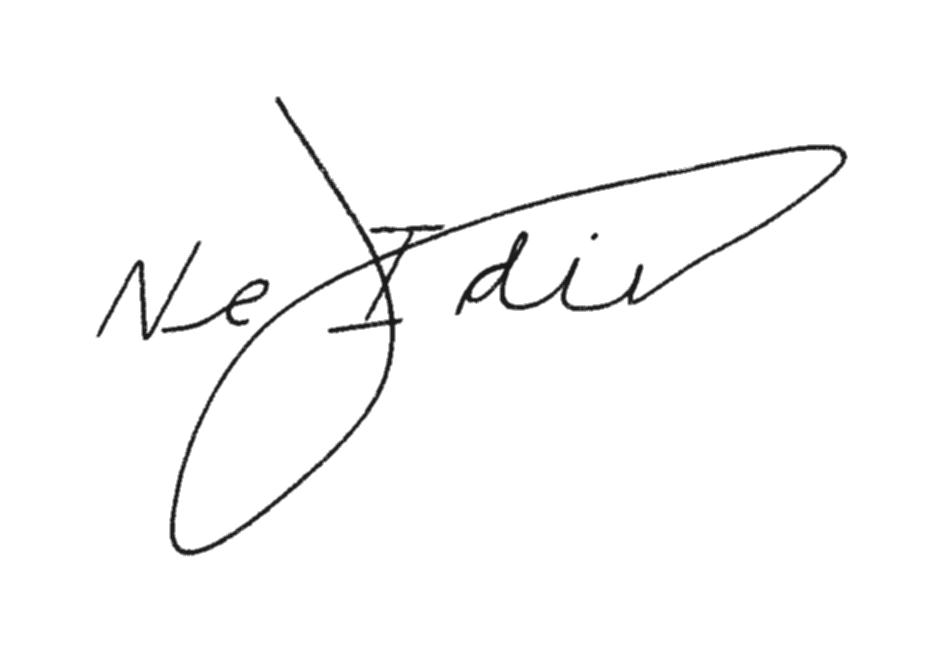 Ne Idir